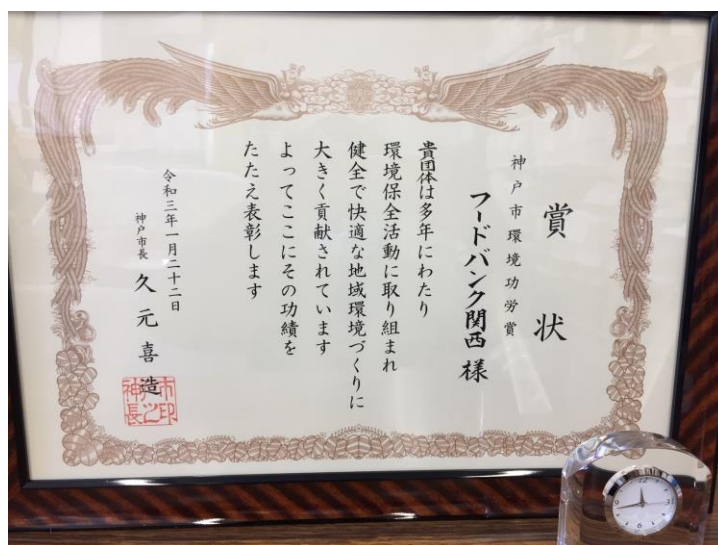 賞状
神戸市環境功労賞
フードバンク関西 様
貴団体は多年にわたり
環境保全活動に取り組まれ
健全で快適な地域環境づくりに
大きく貢献されています
よってここにその功績を
たたえ表彰します
令和三年一月二十二日
神戸市長 久元喜造
神戸市長之印